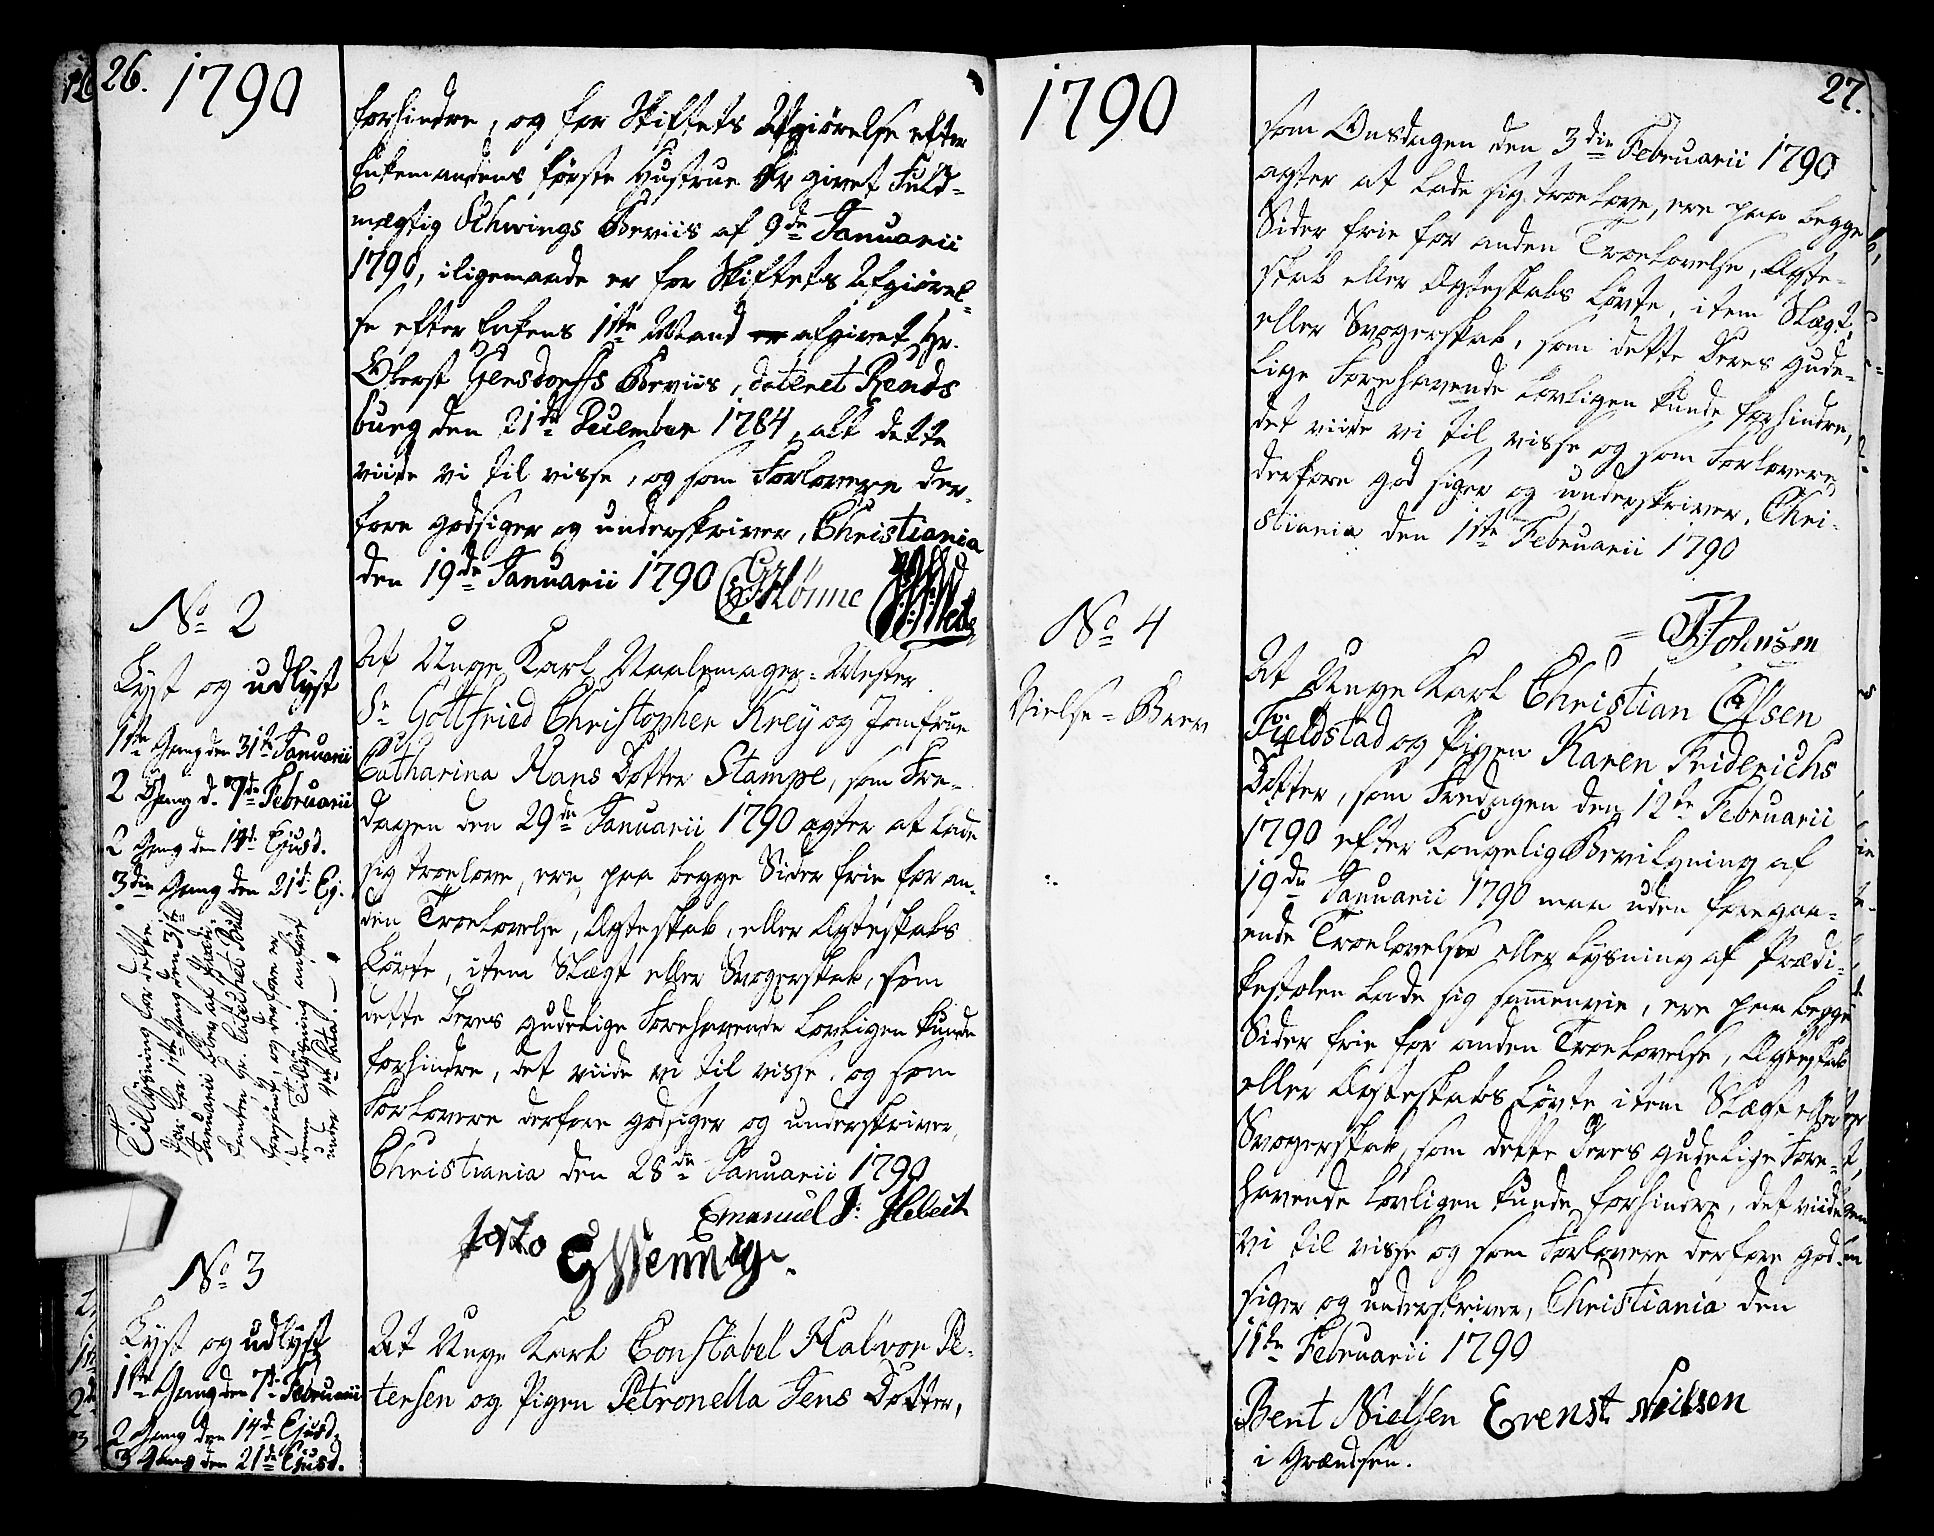 26. 1790
forhindre, og for Skiftets Afgiørelse efter
Enkemandens første Hustrue Er givet Fuld-
mægtig Schwings Beviis af 9de Januarii
1790, iligemaade er for Skiftets Afgiørel-
se efter Enkens 1ste Mand er afgivet Hr.
Oberst Gersdorffs Beviis, dateret Rends
burg den 21de December 1784, alt dette
viide vi til visse, og som Forlovere der-
fore godsiger og underskriver, Christiania
den 19de Januarii 1790
No 2
Lyst og udlyst
1ste Gang den 31te Januarii
2 Gang d. 7de Februarii
2 Gang den 14d. Ejusd.
3die Gang den 21de Ej.
Tillysning for dette
Par der 1ste Gang den 31te
Januarii blev af
Hr.
forsømt, og derfore er
denne Tillysning anført
under 4de
At Unge Karl Maalemager-Mester
Sr Gottfried Christopher Krey og Jomfrue
Catharina Hans Dotter Stampe, som Fre-
dagen den 29de Januarii 1790 agter at lade
sig troelove, ere paa begge Sider frie for an-
den Troelovelse, Ægteskab, eller Ægteskabs
Løvte, item Slægt eller Svogerskab, som
dette deres gudelige Forehavende lovligen kunde
forhindre, det viide vi til visse, og som
Forlovere derfore godsiger og underskriver,
Christiania den 28de Januarii 1790
Emanuel J: Hebert
G Wennig.
No 3
Lyst og udlyst
1ste Gang den 7de Februarii
2 Gang den 14d Ejusd.
3 Gang den 21de Ejusd.
At Unge Karl Constabel Halvor Pe-
tersen og Pigen Petronella Jens Dotter,
1790 27.
som Onsdagen den 3die Februarii 1790
agter at lade sig troelove, ere paa begge
Sider frie for anden Troelovelse, Ægte-
skab eller Ægteskabs Løvte, item Slægt,
eller Svogerskab, som dette deres gude-
lige Forehavende lovligen kunde forhindre,
det viide vi til visse og som Forlovere
derfore god siger og underskriver, Chri-
stiania den 1ste Februarii 1790
Johnsen
No 4
Vielse-Brev
At Unge Karl Christian Olsen
Fieldstad og Pigen Karen Friderichs
Dotter, som Fredagen den 12te Februarii
1790 efter Kongelig Bevilgning af
19de Januarii 1790 maa uden foregaa-
ende Troelovelse eller Lysning af Prædi-
kestolen lade sig sammenvie, ere paa begge
Sider frie for anden Troelovelse, Ægteskab
eller Ægteskabs Løvte item Slægt eller
Svogerskab, som dette deres gudelige Fore-
havende lovligen kunde forhindre, det viide
vi til visse og som Forlovere derfore god-
siger og underskriver, Christiania den
11te Februarii 1790
Bent Nielsen Erenst Neilsen
i Grændsen.